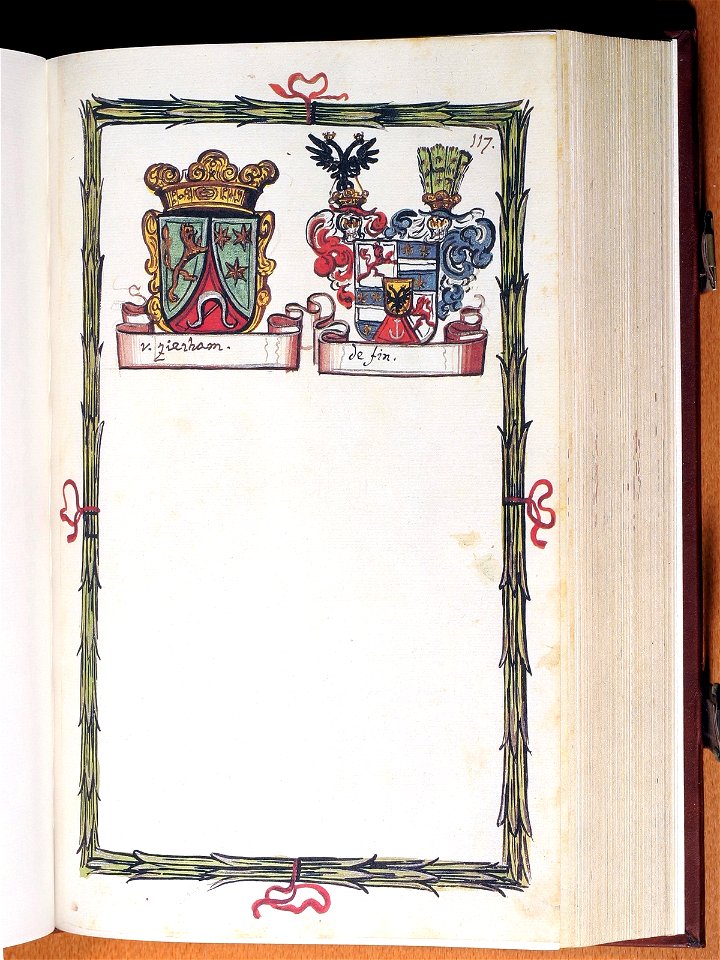 117.
v. zierham.
de fin.